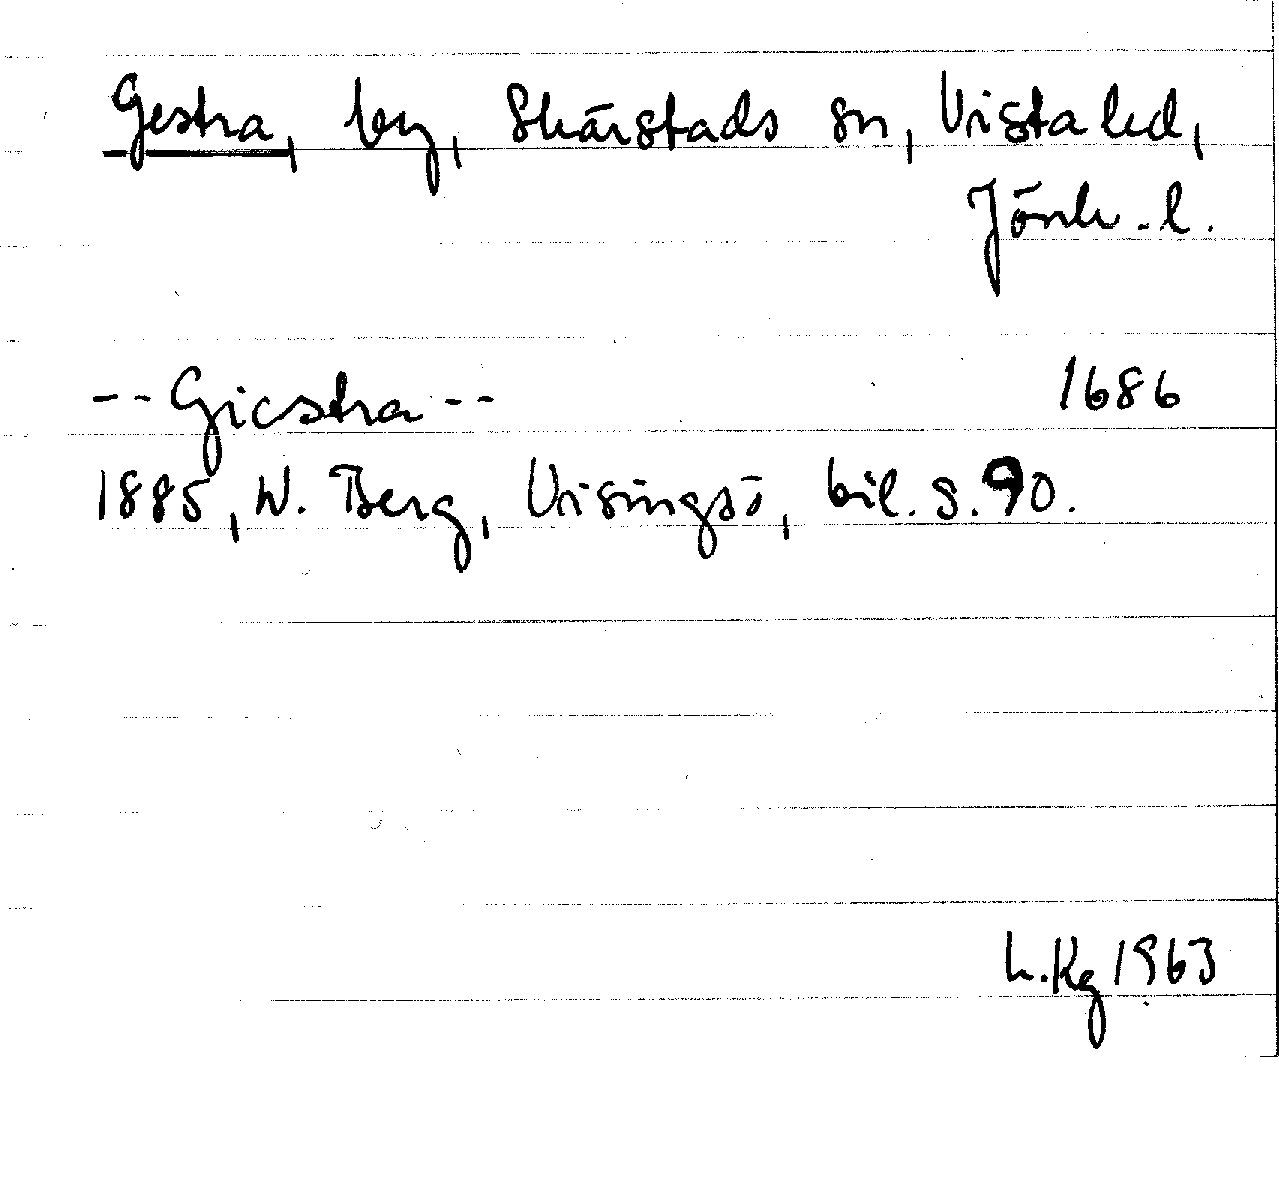 Gestra, by, Skärstads sn, Vista hd,
Jönk. l.
--Gicstra-- 1686
1885, W. Berg, Visingsö, bil. s. 90.
h.Kg 1963